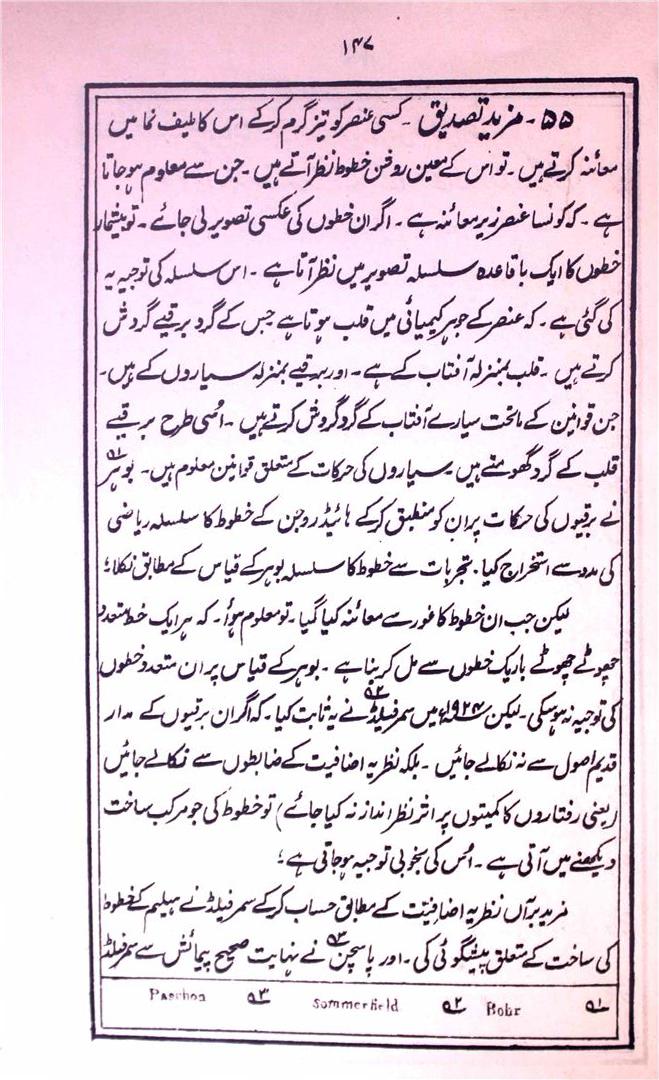 ۱۴۷
۵۵ - مزید تصدیق ۔ کسی عنصر کو تیز گرم کر کے اس کا طیف نما میں
معائنہ کرتے ہیں ۔ تو اس کے معین روشن خطوط نظر آتے ہیں ۔ جن سے معلوم ہو جاتا
ہے ۔ کہ کونسا عنصر زیر معائنہ ہے ۔ اگر ان خطوں کی عکسی تصویر لی جائے ۔ تو بیشمار
خطوں کا ایک باقاعدہ سلسلہ تصویر میں نظر آتا ہے ۔ اس سلسلہ کی توجیہ یہ
کی گئی ہے ۔ کہ عنصر کے جوہر کیمیائی میں قلب ہوتا ہے جس کے گرد برقیے گردش
کرتے ہیں ۔ قلب بمنزلہ آفتاب کے ہے ۔ اور برقیے بمنزلہ سیاروں کے ہیں ۔
جن قوانین کے ماتحت سیارے آفتاب کے گرد گردش کرتے ہیں ۔ اُسی طرح برقیے
قلب کے گرد گھومتے ہیں ۔ سیاروں کی حرکات کے متعلق قوانین معلوم ہیں ۔ بوہر ۹۱
نے برقیوں کی حرکات پر ان کو منطبق کر کے ہائیڈروجن کے خطوط کا سلسلہ ریاضی
کی مدد سے استخراج کیا ۔ تجربات سے خطوط کا سلسلہ بوہر کے قیاس کے مطابق نکلا ؛
لیکن جب ان خطوط کا غور سے معائنہ کیا گیا ۔ تو معلوم ہوٗا ۔ کہ ہر ایک خط متعدد
چھوٹے چھوٹے باریک خطوں سے مل کر بنا ہے ۔ بوہر کے قیاس پر ان متعدد خطوں
کی توجیہ نہ ہو سکی ۔ لیکن ۱۹۲۴ء میں سمرفیلڈ ۹۲ نے یہ ثابت کیا ۔ کہ اگر ان برقیوں کے مدار
قدیم اصول سے نہ نکالے جائیں ۔ بلکہ نظریہ اضافیت کے ضابطوں سے نکالے جائیں
(یعنی رفتاروں کا کمیتوں پر اثر نظر انداز نہ کیا جائے) تو خطوط کی جو مرکب ساخت
دیکھنے میں آتی ہے ۔ اُس کی بخوبی توجیہ ہو جاتی ہے ؛
مزید برآں نظریہ اضافیت کے مطابق حساب کر کے سمرفیلڈ نے ہیلیم کے خطوط
کی ساخت کے متعلق پیشگوئی کی ۔ اور پاسچن ۹۳ نے نہایت صحیح پیمائش سے سمرفیلڈ
۹۱ Bohr ۹۲ Sommerfield ۹۳ Paschon